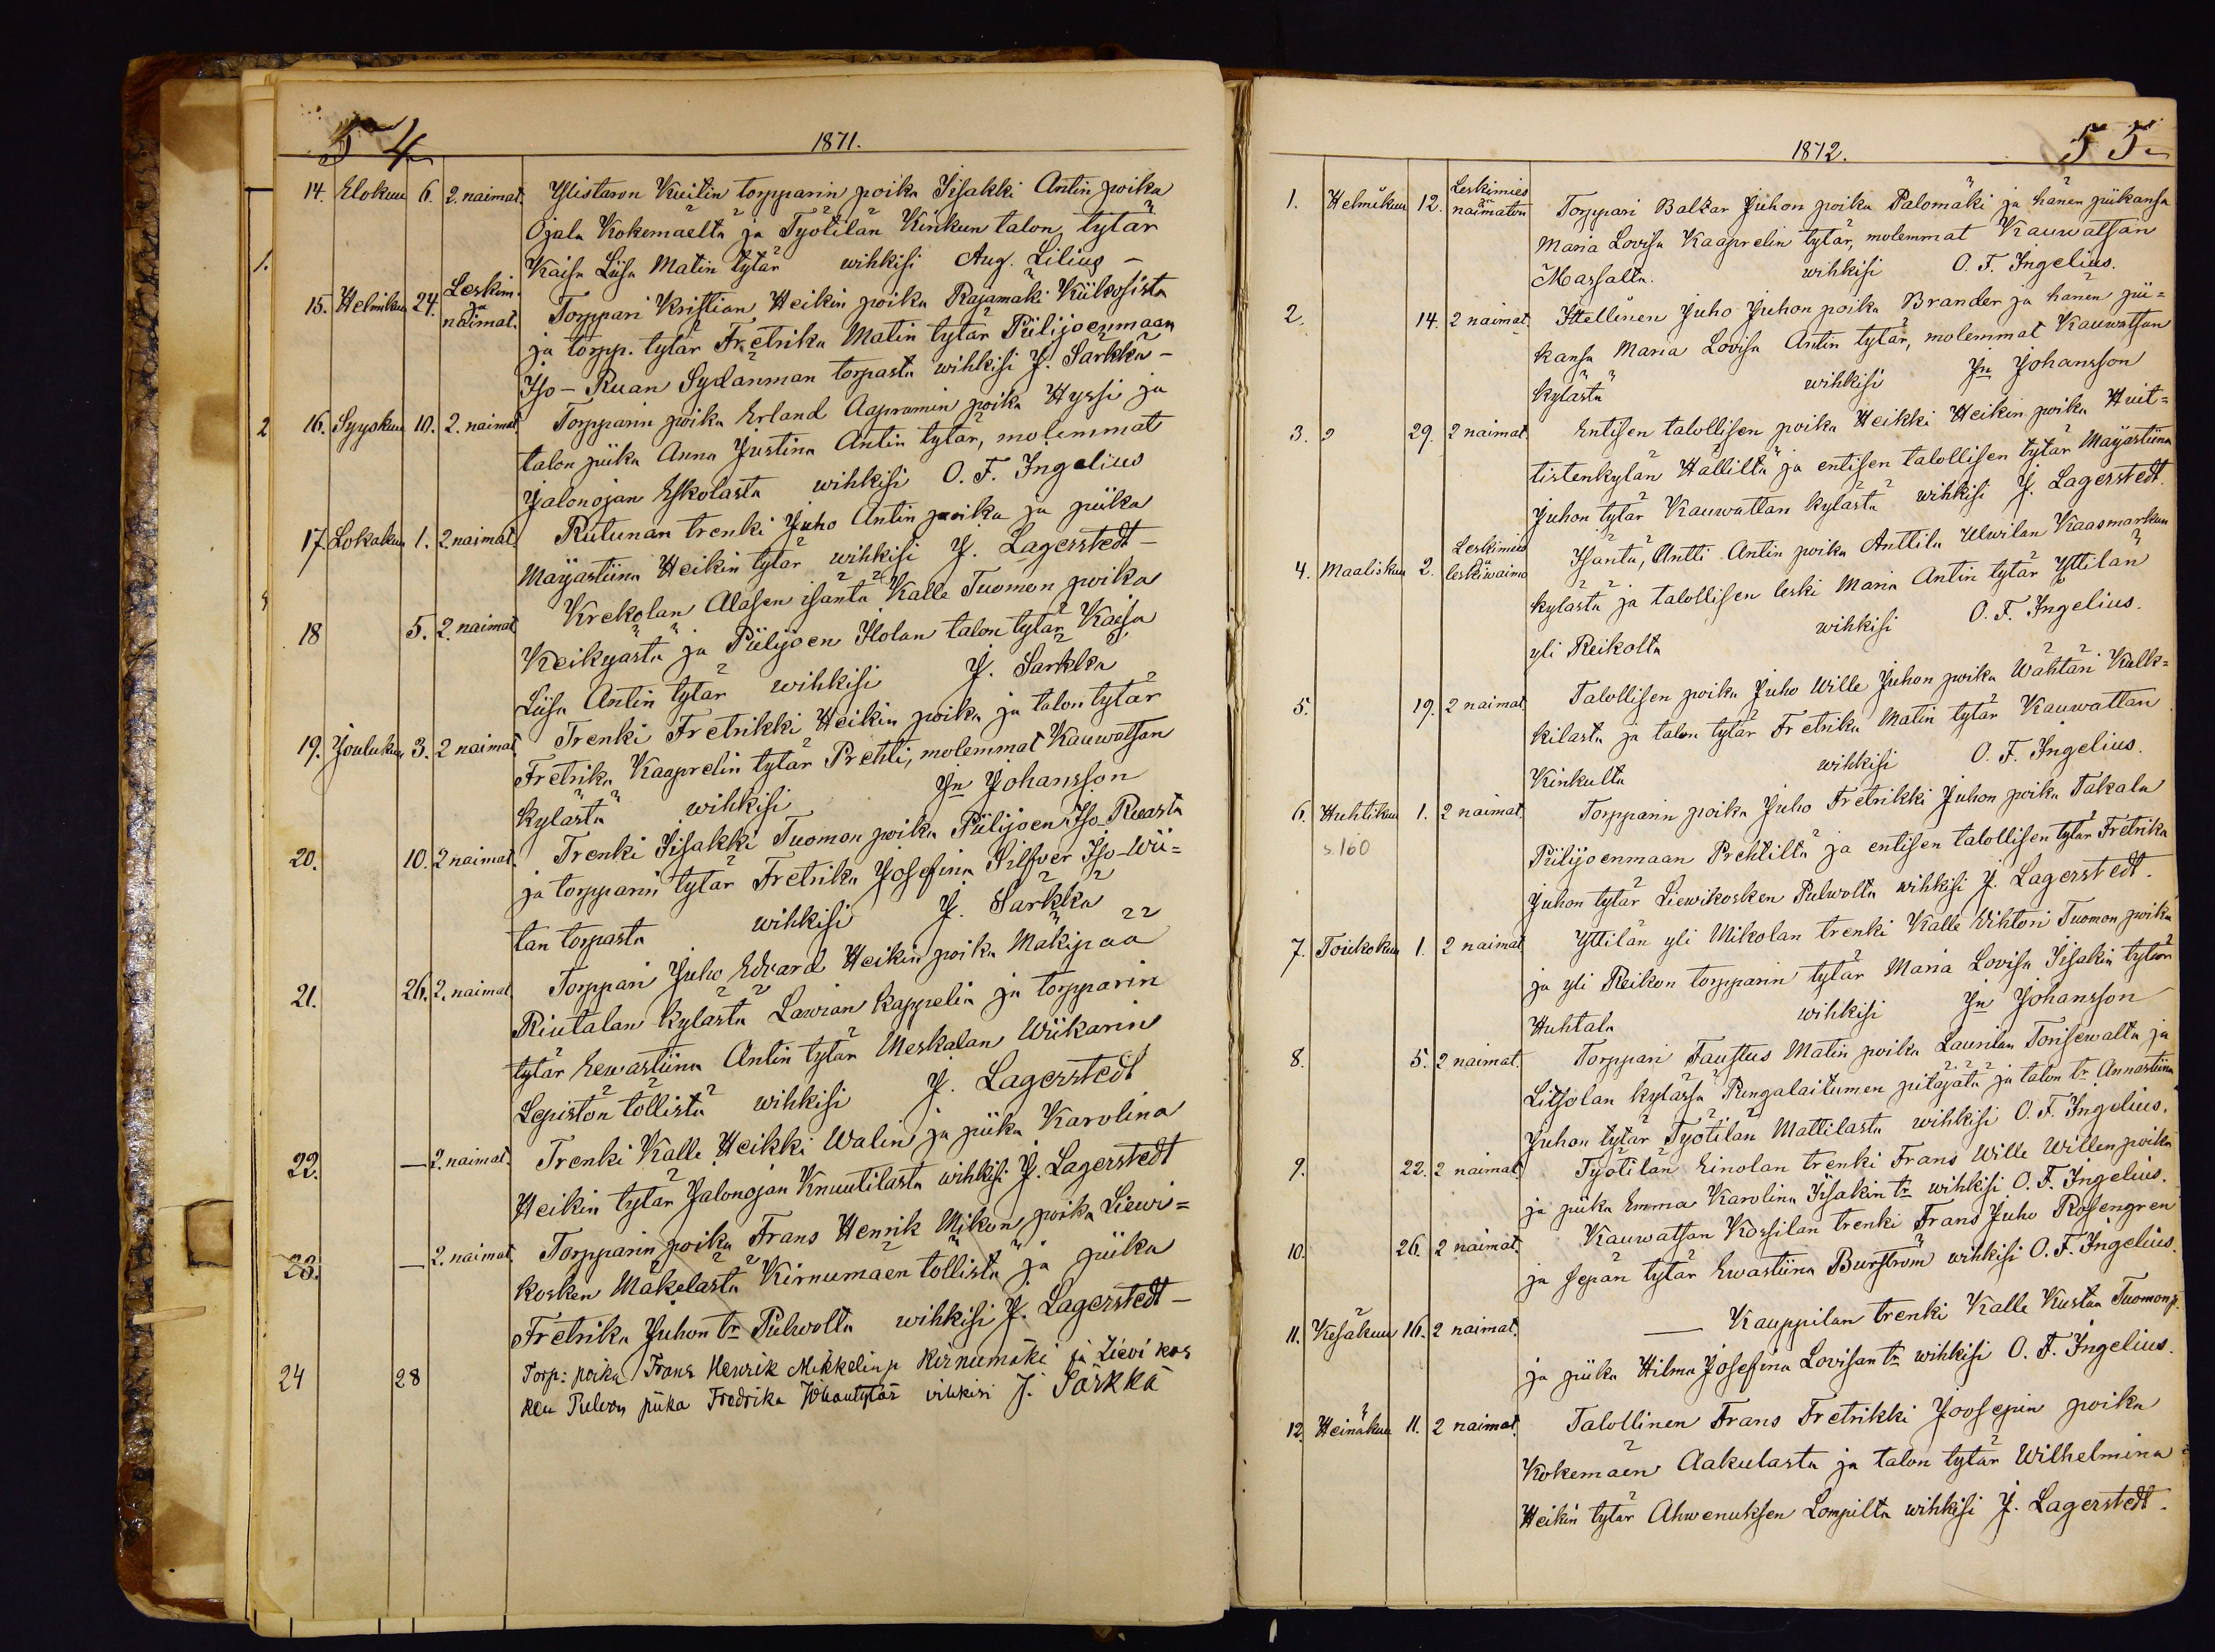 54
1871.
14. Elokuu 6. 2. naimat. Ylistaron Kuitin torpparin poika Iisakki Antin poika
Ojala Kokemäeltä ja Työtilän Kinkun talon tytär
1.
Kaisa Liisa Matin tytär wihkisi Aug. Lilius –
15. Helmikuu 24. Leskim. ja naimat. Torppari Kristian Heikin poika Rajamäki Kiikosista
ja torpp. tytär Fretrika Matin tytär Piilijoenmaan
Iso-Ruan Sydänmaan torpasta wihkisi J. Särkkä –
2 16. Syyskuu 10. 2. naimat. Torpparin poika Erland Aapramin poika Hyssi ja
talon piika Anna Justina Antin tytär, molemmat
Jalonojan Eskolasta wihkisi O. F. Ingelius
17. Lokakuu 1. 2. naimat. Rutunan trenki Juho Antin poika ja piika
Majastiina Heikin tytär wihkisi J. Lagerstedt –
18 5. 2. naimat Krekolan Alasen isäntä Kalle Tuomon poika
Keikyästä ja Piilijoen Ilolan talon tytär Kaisa
Liisa Antin tytär wihkisi J. Särkkä
19. Joulukuu 3. 2 naimat Trenki Fretrikki Heikin poika ja talon tytär
Fretrika Kaaprelin tytär Prehti, molemmat Kauwatsan
kylästä wihkisi Jn Johansson
20. 10. 2 naimat. Trenki Iisakki Tuomon poika Piilijoen Iso-Ruasta
ja torpparin tytär Fretrika Josefina Silfver Iso-Wii=
tan torpasta wihkisi J. Särkkä
21. 26. 2. naimat. Torppari Juho Edvard Heikin poika Mäkipää
Riutalan kylästä Lawian kappelia ja torpparin
tytär Eewastiina Antin tytär Meskalan Wiikarin
Lepistön töllistä wihkisi J. Lagerstedt
22. — 2. naimat. Trenki Kalle Heikki Walin ja piika Karolina
Heikin tytär Jalonojan Knuutilasta wihkisi J. Lagerstedt
23. — 2. naimat. Torpparin poika Frans Henrik Mikon poika Liewi=
kosken Mäkelästä Kirnumäen töllistä ja piika
Fretrika Juhon tr Pulwolta wihkisi J. Lagerstedt –
24 28 Torp: poika Frans Henrik Mikkelin p Kirnumäki ja Lievi kos
ken Pulvon piika Fredrika Juhantytär vihkisi J. Särkkä
55
1872.
1. Helmikuu 12. Leskimies ja naimaton Torppari Balzar Juhon poika Palomäki ja hänen piikansa
Maria Lovisa Kaaprelin tytär, molemmat Kauwatsan
Massalta. wihkisi O. F. Ingelius.
2. 14. 2 naimat. Itellinen Juho Juhon poika Brander ja hänen pii=
kansa Maria Lovisa Antin tytär, molemmat Kauwatsan
kylästä wihkisi Jn Johansson
3. 29. 2 naimat. Entisen talollisen poika Heikki Heikin poika Huit=
tistenkylän Hällilta ja entisen talollisen tytär Majastiina
Juhon tytär Kauwattan kylästä wihkisi J. Lagerstedt.
4. Maaliskuu 2. Leskimies ja leskiwaimo Isäntä, Antti Antin poika Anttila Ulwilan Kaasmarkun
kylästä ja talollisen leski Maria Antin tytär Yttilän
yli Reikolta wihkisi O. F. Ingelius.
5. 19. 2 naimat. Talollisen poika Juho Wille Juhon poika Wähtäri Kulk=
kilasta ja talon tytär Fretrika Matin tytär Kauwattan
Kinkulta wihkisi O. F. Ingelius.
6. Huhtikuu 1. 2 naimat. Torpparin poika Juho Fretrikki Juhon poika Takala
s. 160
Piilijoenmaan Prehtiltä ja entisen talollisen tytär Fretrika
Juhon tytär Liewikosken Pulwolta wihkisi J. Lagerstedt.
7. Toukokuu 1. 2 naimat Yttilän yli Mikolan trenki Kalle Wihtori Tuomon poika
ja yli Reikon torpparin tytär Maria Lovisa Iisakin tytär
Huhtala wihkisi Jn Johansson
8. 5. 2 naimat. Torppari Faustus Matin poika Launilan Torisewalta ja
Litsolan kylässä Pungalaitumen pitäjätä ja talon tr Annastiina
Juhon tytär Tyotilän Mattilasta wihkisi O. F. Ingelius.
9. 22. 2 naimat. Tyotilän Einolan trenki Frans Wille Willen poika
ja piika Emma Karolina Iisakin tr wihkisi O. F. Ingelius.
10. 26. 2 naimat. Kauwatsan Kossilan trenki Frans Juho Rosengren
ja sepän tytär Ewastiina Burström wihkisi O. F. Ingelius.
11. Kesäkuu 16. 2 naimat. — Kauppilan trenki Kalle Kustaa Tuomon p.
ja piika Hilma Josefina Lovisan tr wihkisi O. F. Ingelius.
12. Heinäkuu 11. 2 naimat. Talollinen Frans Fretrikki Joosepin poika
Kokemäen Aakulasta ja talon tytär Wilhelmina
Heikin tytär Ahwenuksen Lompilta wihkisi J. Lagerstedt.